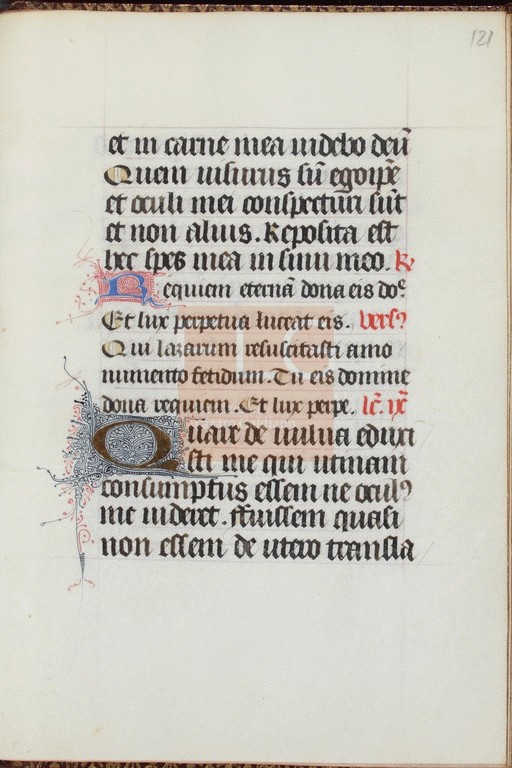 121
et in carne mea videbo deū
Quem visurus sū ego ip̄e
et oculi mei conspecturi sūt
et non alius. Reposita est
hec spes mea in sinu meo. R̸
Requiem eternā dona eis doᵉ
Et lux perpetua luceat eis. versꝰ
Qui lazarum resuscitasti a mo
numento fetidum. Tu eis domine
dona requiem. Et lux perpe. lc̄. ix̄
Quare de vulva eduxi
sti me qui utinam
consumptus essem ne oculꝰ
me videret. ffuissem quasi
non essem de utero transla